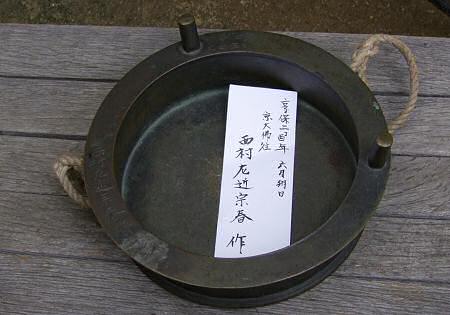 享保二酉年 六月朔日
京大佛住
西村左近宗春 作